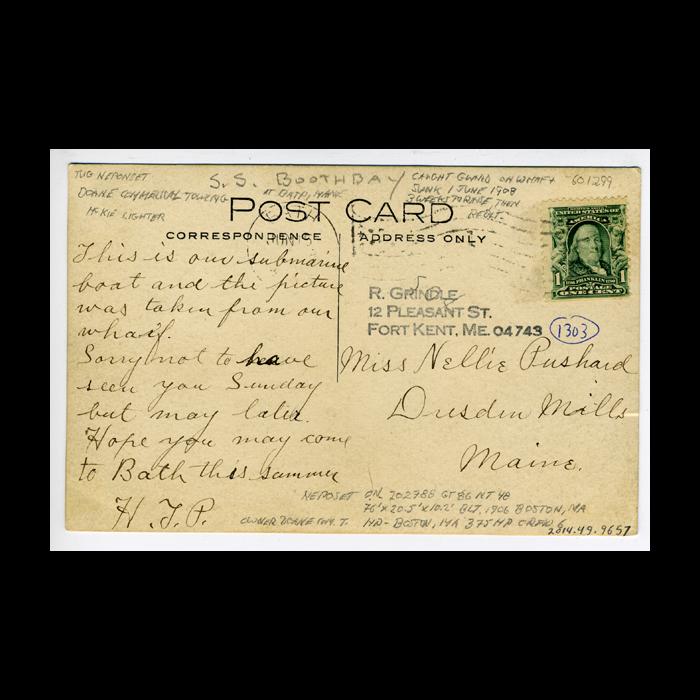 TUG NEPONSET
DOANE COMMERCIAL TOWING
McKIE LIGHTER
S.S. BOOTHBAY
AT BATH, MAINE
CAUGHT GUARD ON WHARF
SUNK 1 JUNE 1908
3 WEEKS TO RAISE THEN
REBLT.
601299
POST CARD
CORRESPONDENCE
ADDRESS ONLY
UNITED STATES OF
AMERICA
FRANKLIN
POSTAGE
1 1
ONE CENT
This is our submarine
boat and the picture
was taken from our
wharf.
Sorry not to have
seen you Sunday
but may later.
Hope you may come
to Bath this summer
H. J. P.
R. GRINDLE
12 PLEASANT ST.
FORT KENT, ME. 04743
1303
Miss Nellie Pushard
Dresden Mills
Maine.
NEPOSET ON 202788 GT 86 NT 48
76'x20.5'x10.2' BLT. 1906 BOSTON, MA
OWNER DOANE COM. T. HP- BOSTON, MA 375 HP CREW 6
2814.49.9657